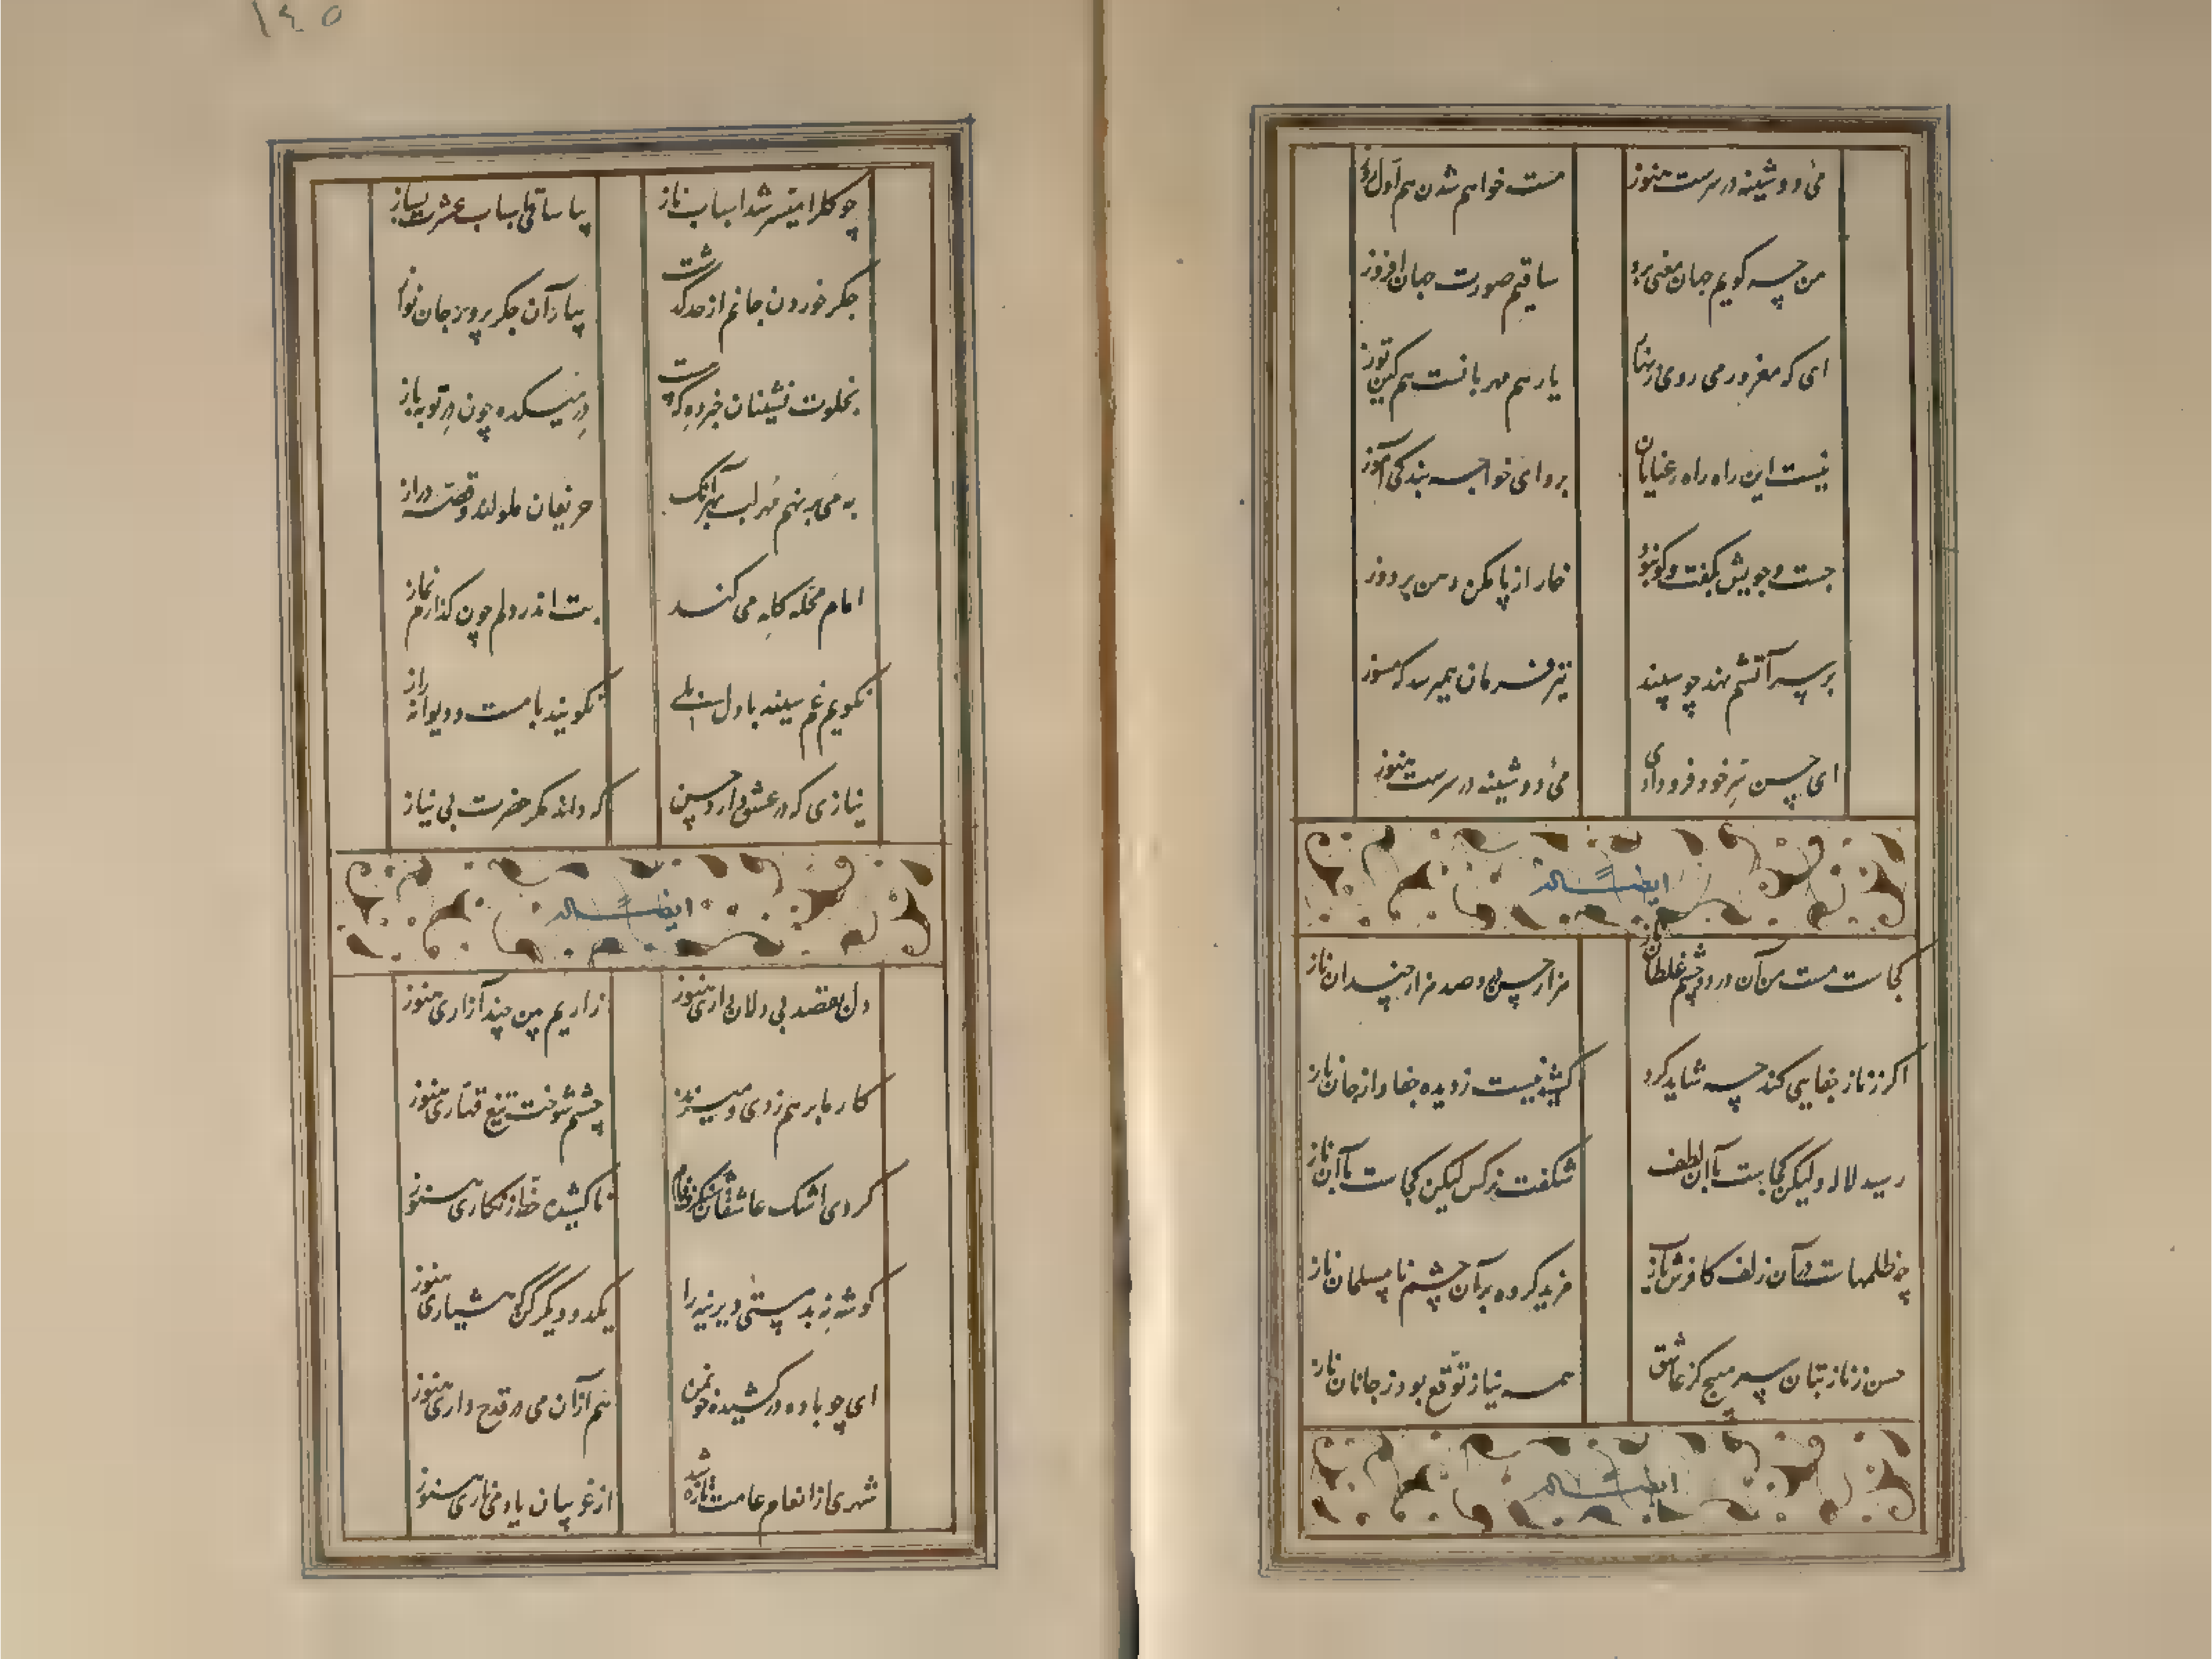 ۱٤٥
می دوشینه در سرست هنوز مست خواهم شدن هم اول روز
من چه گویم جهان معنی برو ساقیم صورت جهان افروز
ای که مغرور می روی در راه یار هم مهربانست هم کین توز
نیست این راه راه رعنایان برو ای خواجه بندگی آموز
جست و جویش بگفت و گو نبود خار از پا بکن دهن بر دوز
بر سر آتشم نهد چو سپند نیز فرمان همی رسد که مسوز
ای حسن سر خود فرو دادی می دوشینه در سرست هنوز
ایضاً له
کجاست مست من آن در دو چشم غلطان ناز هزار حسن و صد هزار چندان ناز
اگر ز ناز جفایی کند چه شاید کرد کشیدنیست ز دیده جفا و از جان ناز
رسید لاله ولیکن کجاست با آن لطف شکفت نرگس لیکن کجاست با آن ناز
چه ظلمهاست در آن زلف کافرش یا رب مزید کرده بر آن چشم نامسلمان ناز
حسن ز ناز بتان سر مپیچ کز عاشق همه نیاز توقع بود ز جانان ناز
ایضاً له
چو گل را میسر شد اسباب ناز بیا ساقی اسباب عشرت بساز
جگر خوردن جانم از حد گذشت بیار آن جگر پرور جان نواز
بخلوت نشینان خبر ده که چیست در میکده چون در توبه باز
به می بر نهم مهر لب بهر آنک حریفان ملولند و قصه دراز
امام محله گله می کند بت اندر دلم چون گذارم نماز
نگویم غم سینه با دل بلی نگویند با مست و دیوانه راز
نیازی که در عشق دارد حسن که داند مگر حضرت بی نیاز
ایضاً له
دل بقصد بی دلان داری هنوز زاریم بین چند آزاری هنوز
کار ما بر هم زدی و میزند چشم شوخت تیغ قهاری هنوز
کردی اشک عاشقان شنگرف فام ناکشیده خط زنگاری هنوز
گوشه نه بد مستی دیرینه را یکدو دیگر گن هشیاری هنوز
ای چو باده در کشیده خون من هم از آن می در قدح داری هنوز
شهری از انعام عامت تازه شد از غریبان یاد می ناری هنوز